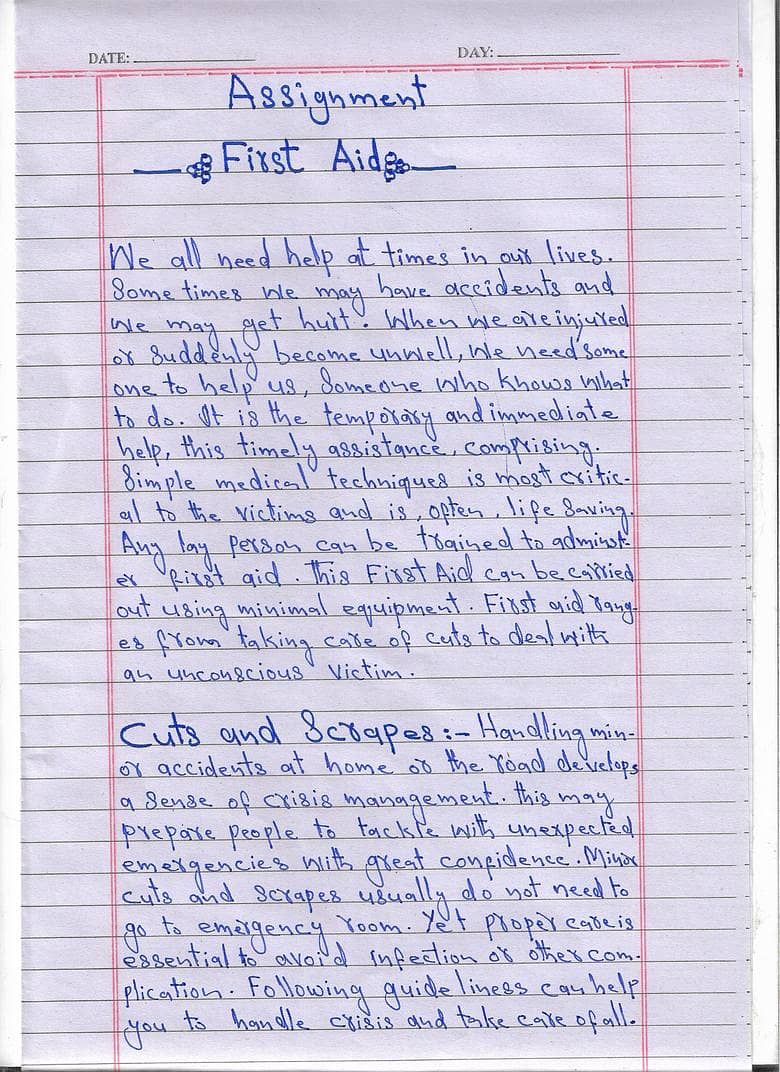 DATE: DAY:
Assignment
First Aid
We all need help at times in our lives.
Some times we may have accidents and
we may get hurt. When we are injured
or suddenly become unwell, we need some
one to help us, someone who knows what
to do. It is the temporary and immediate
help, this timely assistance, comprising.
Simple medical techniques is most critic-
al to the victims and is, often, life saving.
Any lay person can be trained to administ-
er first aid. This First Aid can be carried
out using minimal equipment. First aid rang-
es from taking care of cuts to deal with
an unconscious victim.
Cuts and Scrapes:- Handling min-
or accidents at home or the road develops
a sense of crisis management. this may
prepare people to tackle with unexpected
emergencies with great confidence. Minor
cuts and scrapes usually do not need to
go to emergency room. Yet proper care is
essential to avoid infection or other com-
plication. Following guide liness can help
you to handle crisis and take care of all.